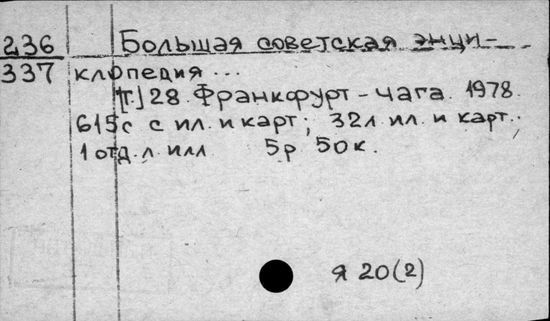 236 Большая советская энци-
337 клопедия ...
[Т.] 28. Франкфурт - Чага. 1978.
615с с ил. и карт; 32л. ил. и карт.;
1 отд. л. илл 5р 50к.
Я 20(2)